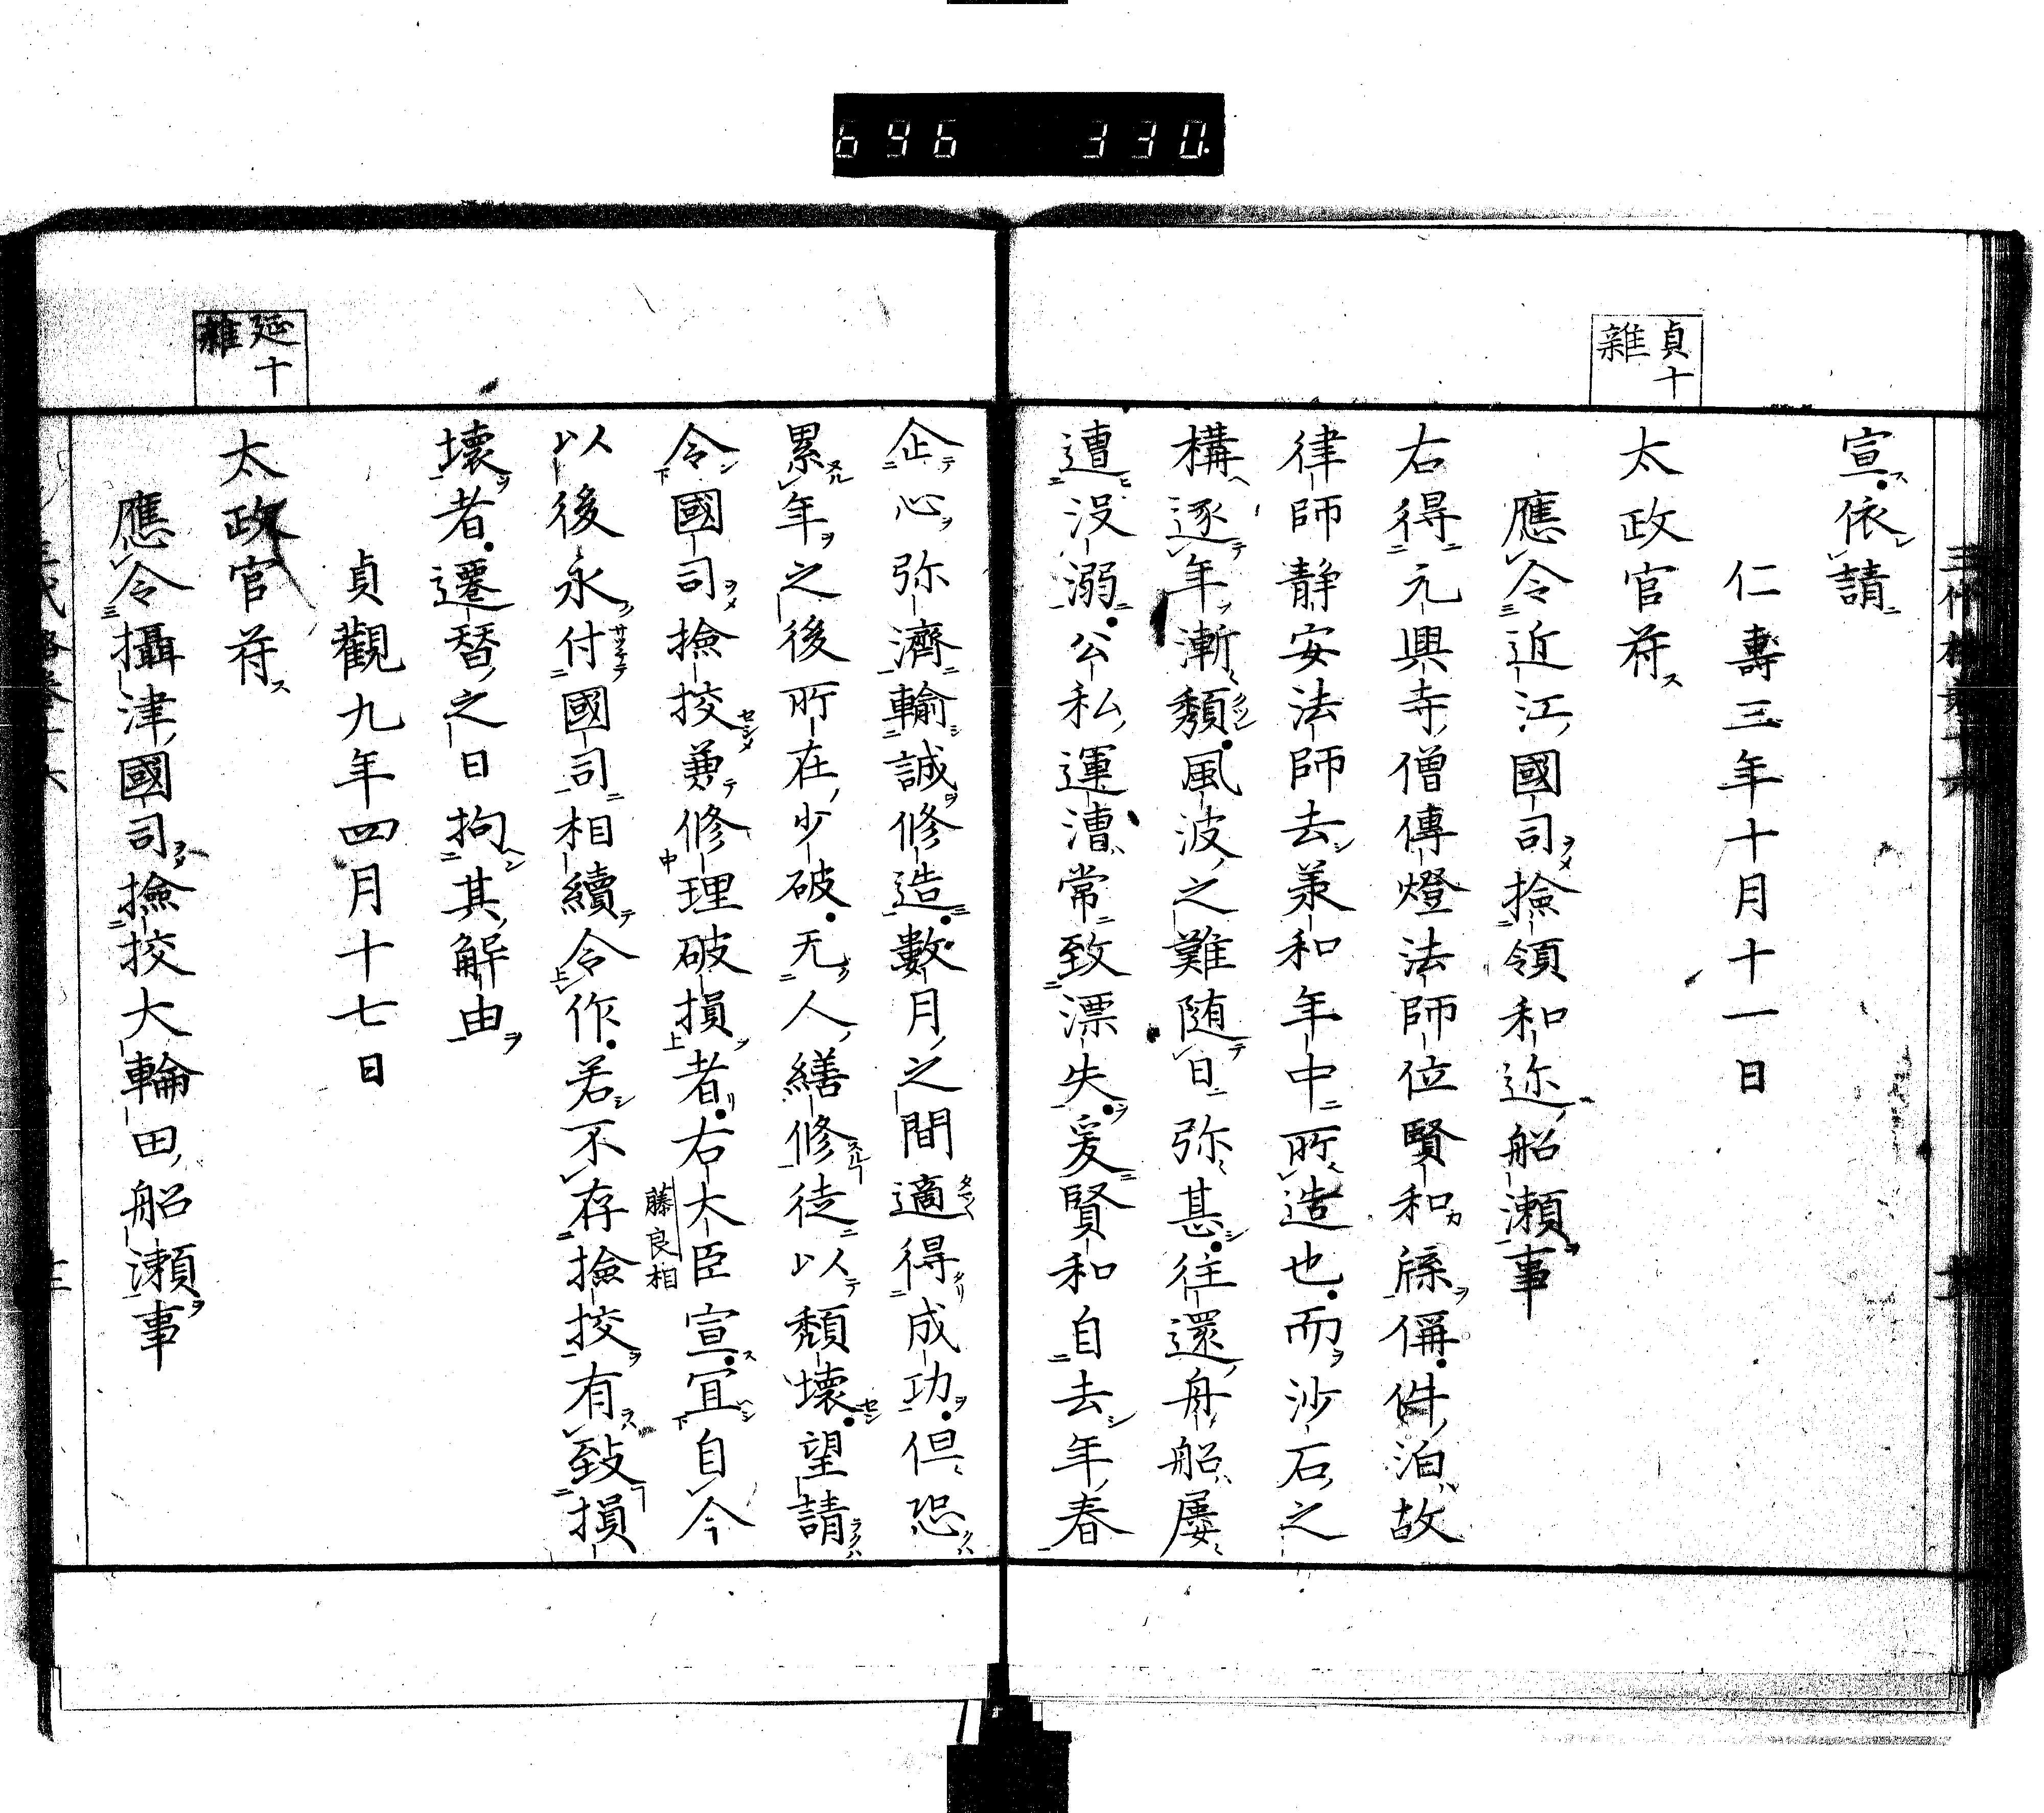 696 330
貞十
雜
宣依請
仁壽三年十月十一日
太政官符
應令近江國司撿領和迩船瀬事
右得元興寺僧傳燈法師位賢和牒偁件泊故
律師静安法師去承和年中所造也而沙石之
構逐年漸頽風波之難随日弥甚往還舟船屢
遭没溺公私運漕常致漂失爰賢和自去年春
企心弥濟輸誠修造數月之間適得成功但恐
累年之後所在少破无人繕修徒以頽壊望請
令國司撿挍兼修理破損者右大臣宣宜自今
藤良相
以後永付國司相續令作若不存撿挍有致損
壊者遷替之日拘其解由
貞觀九年四月十七日
延十
雜
太政官符
應令攝津國司撿挍大輪田船瀬事